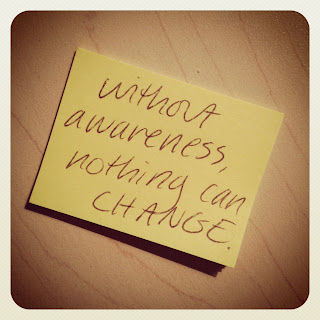 without
awareness,
nothing can
CHANGE.